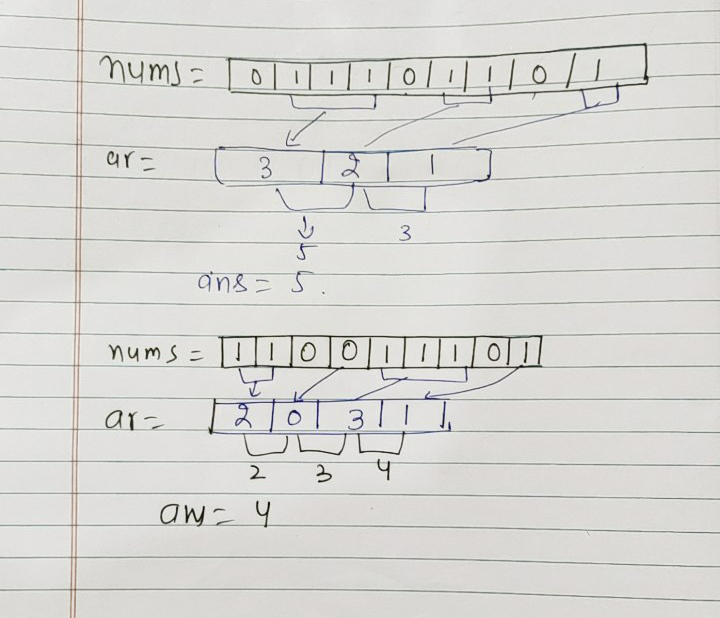 nums = 0 1 1 1 0 1 1 0 1
ar = 3 2 1
5 3
ans = 5.
nums = 1 1 0 0 1 1 1 0 1
ar = 2 0 3 1
2 3 4
ans = 4